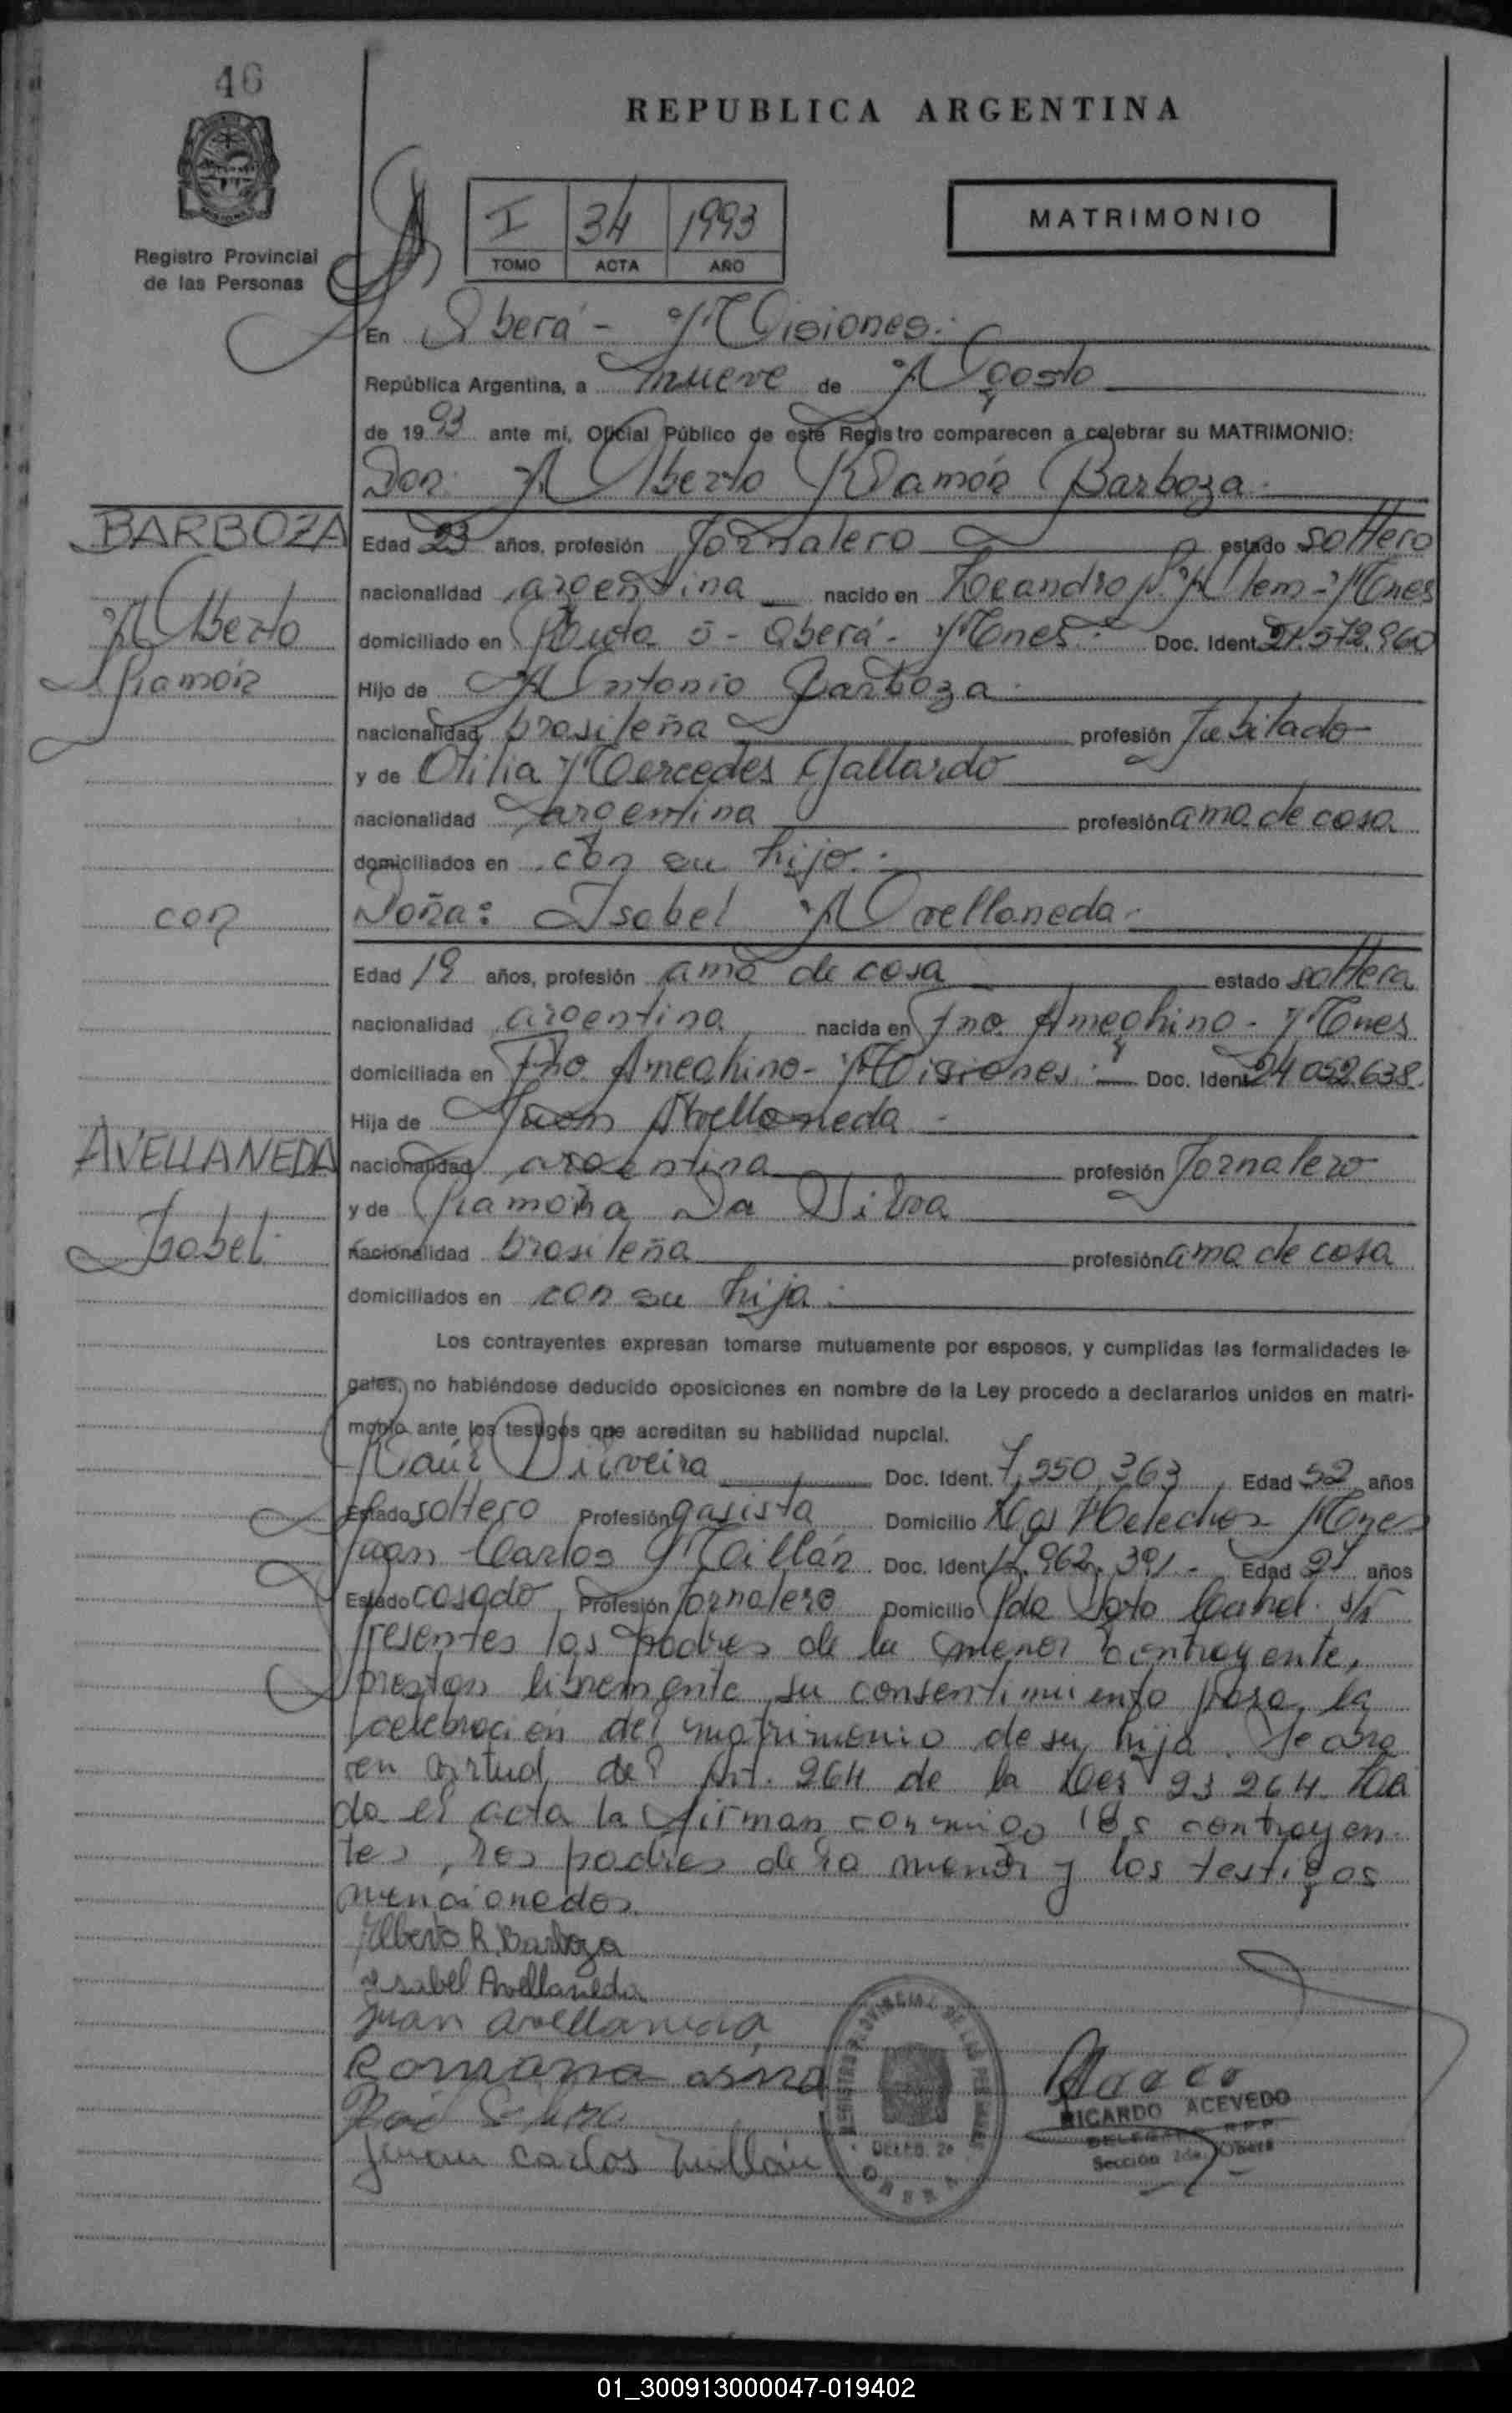 46
REPUBLICA ARGENTINA
Registro Provincial
de las Personas
I 34 1993
TOMO ACTA AÑO
MATRIMONIO
En Oberá - Misiones.
República Argentina, a nueve de Agosto
de 1993 ante mí, Oficial Público de este Registro comparecen a celebrar su MATRIMONIO:
Don Alberto Ramón Barboza
BARBOZA
Alberto
Ramón
Edad 23 años, profesión Jornalero estado soltero
nacionalidad argentina nacido en Leandro N. Alem - Mnes
domiciliado en Ruta 5 - Oberá - Mnes. Doc. Ident. 21.572.960
Hijo de Antonio Barboza
nacionalidad brasileña profesión Jubilado
y de Otilia Mercedes Gallardo
nacionalidad argentina profesión ama de casa
domiciliados en con su hijo.
con
Doña: Isabel Avellaneda
Edad 19 años, profesión ama de casa estado soltera
nacionalidad argentina nacida en Fno Ameghino - Mnes
domiciliada en Fno Ameghino - Misiones. Doc. Ident. 24 052.638.
Hija de Juan Avellaneda
AVELLANEDA
Isabel
nacionalidad argentina profesión Jornalero
y de Ramona Da Silva
nacionalidad brasileña profesión ama de casa
domiciliados en con su hija.
Los contrayentes expresan tomarse mutuamente por esposos, y cumplidas las formalidades le-
gales, no habiéndose deducido oposiciones en nombre de la Ley procedo a declararlos unidos en matri-
monio ante los testigos que acreditan su habilidad nupcial.
Raúl Silveira Doc. Ident. 7,550,363 Edad 52 años
Estado soltero Profesión gasista Domicilio Los Helechos Mnes
Juan Carlos Millán Doc. Ident. 962.391 - Edad años
Estado casado Profesión Jornalero Domicilio s/n
Presentes los padres de la menor contrayente,
prestan libremente su consentimiento para la
celebración del matrimonio de su hija. Se obra
en virtud del Art. 264 de la Ley 23 264. Leí
da el acta la firman conmigo los contrayen-
tes, los padres de la menor y los testigos
mencionados
Alberto R. Barboza
Isabel Avellaneda
Juan Avellaneda
Juan Carlos Millán
REGISTRO PROVINCIAL DE LAS PERSONAS
DELEG. 2a
OBERA
RICARDO ACEVEDO
DELEGADO R.P.P.
Sección 2da. Oberá
01_300913000047-019402